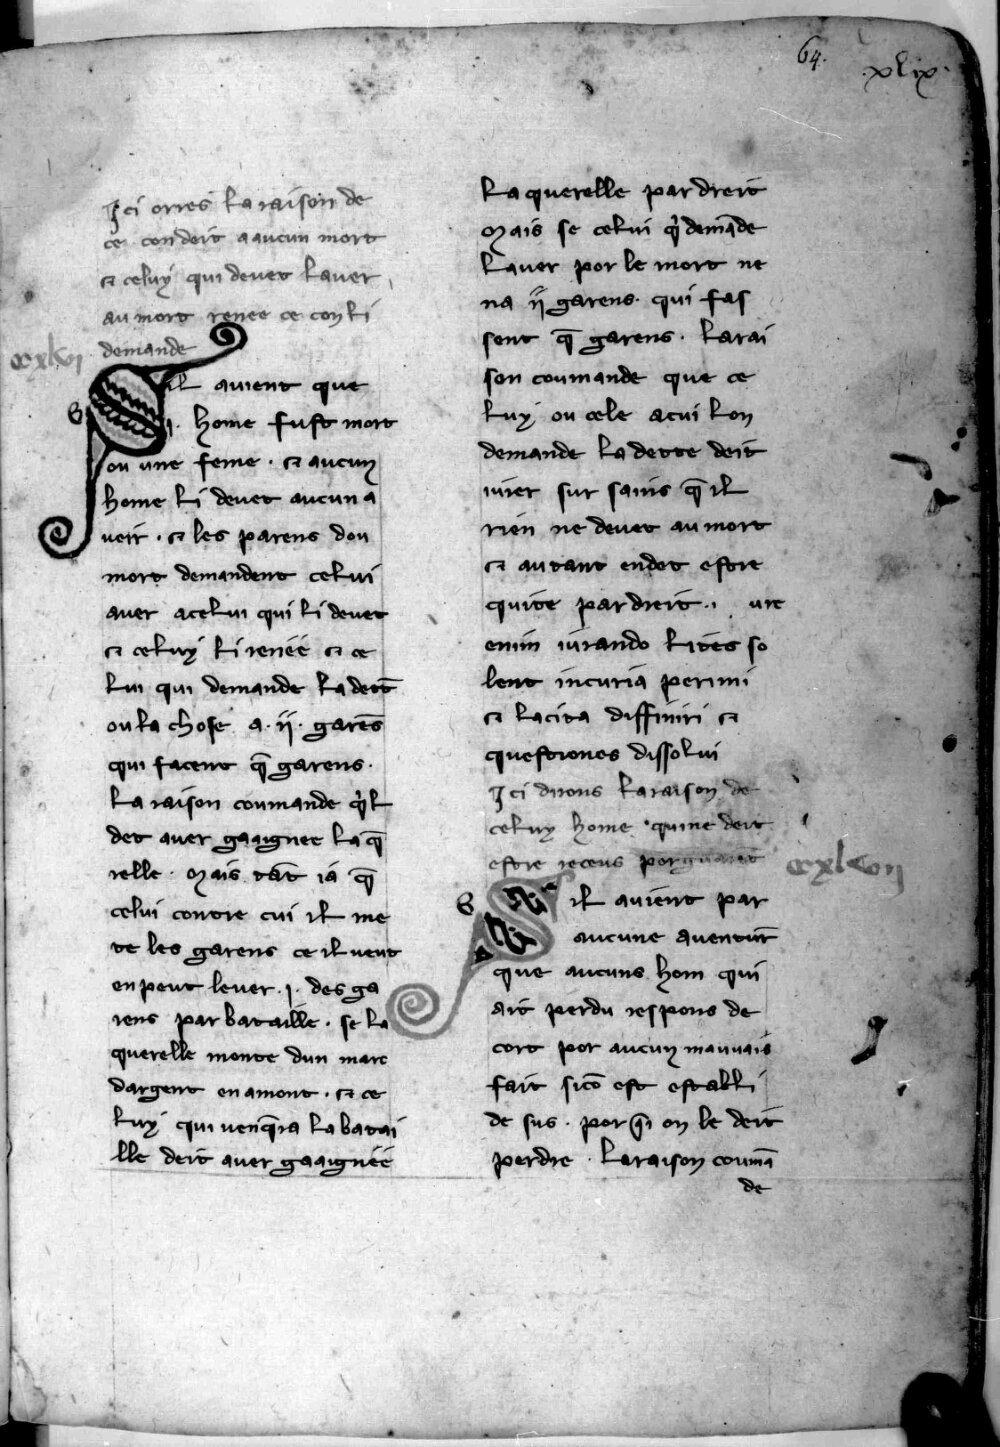 64.
.xlix.
Ici orres la raison de
ce con deit a aucun mort
⁊ celuy qui devet laver
au mort renee ce con li
demande
cxlvi
S il avient que
.i. home fust mort
ou une feme . ⁊ aucun
home li devet aucun a
veir . ⁊ les parens dou
mort demandent celui
aver a celui qui li devet
⁊ celuy li renee ⁊ ce
lui qui demande la dett̄
ou la chose a .ii. garēs
qui facent q̄ garens .
La raison coumande q̓l
det aver gaaignee la q̄
relle . Mais tāt ia q̄
celui contre cui il me
te les garens ce il veut
en peut lever .i. des ga
rens par bataille . se la
querelle monte dun marc
dargent en amont . ⁊ ce
luy qui venq̄ra la batai
lle deit aver gaaignee
la querelle par dreit
Mais se celui q̓ demāde
laver por le mort ne
na .ii. garens . qui fas
sent q̄ garens . La rai
son coumande que ce
luy ou cele a cui lon
demande la dette deit
iurer sur sains q̄ il
rien ne devet au mort
⁊ autant en det estre
quite par dreit . iure
enim iurando lites so
lent incuria perimi
⁊ lacita diffiniri ⁊
questiones dissolui
Ici dirons la raison de
celuy home qui ne deit
estre receus por guarent
cxlvii
S il avient par
aucune aventur̄
que aucuns hom qui
ait perdu respons de
cort por aucun mauvais
fait sicō est establi
de sus . por q̓ on le deit
perdre . La raison coumā
de